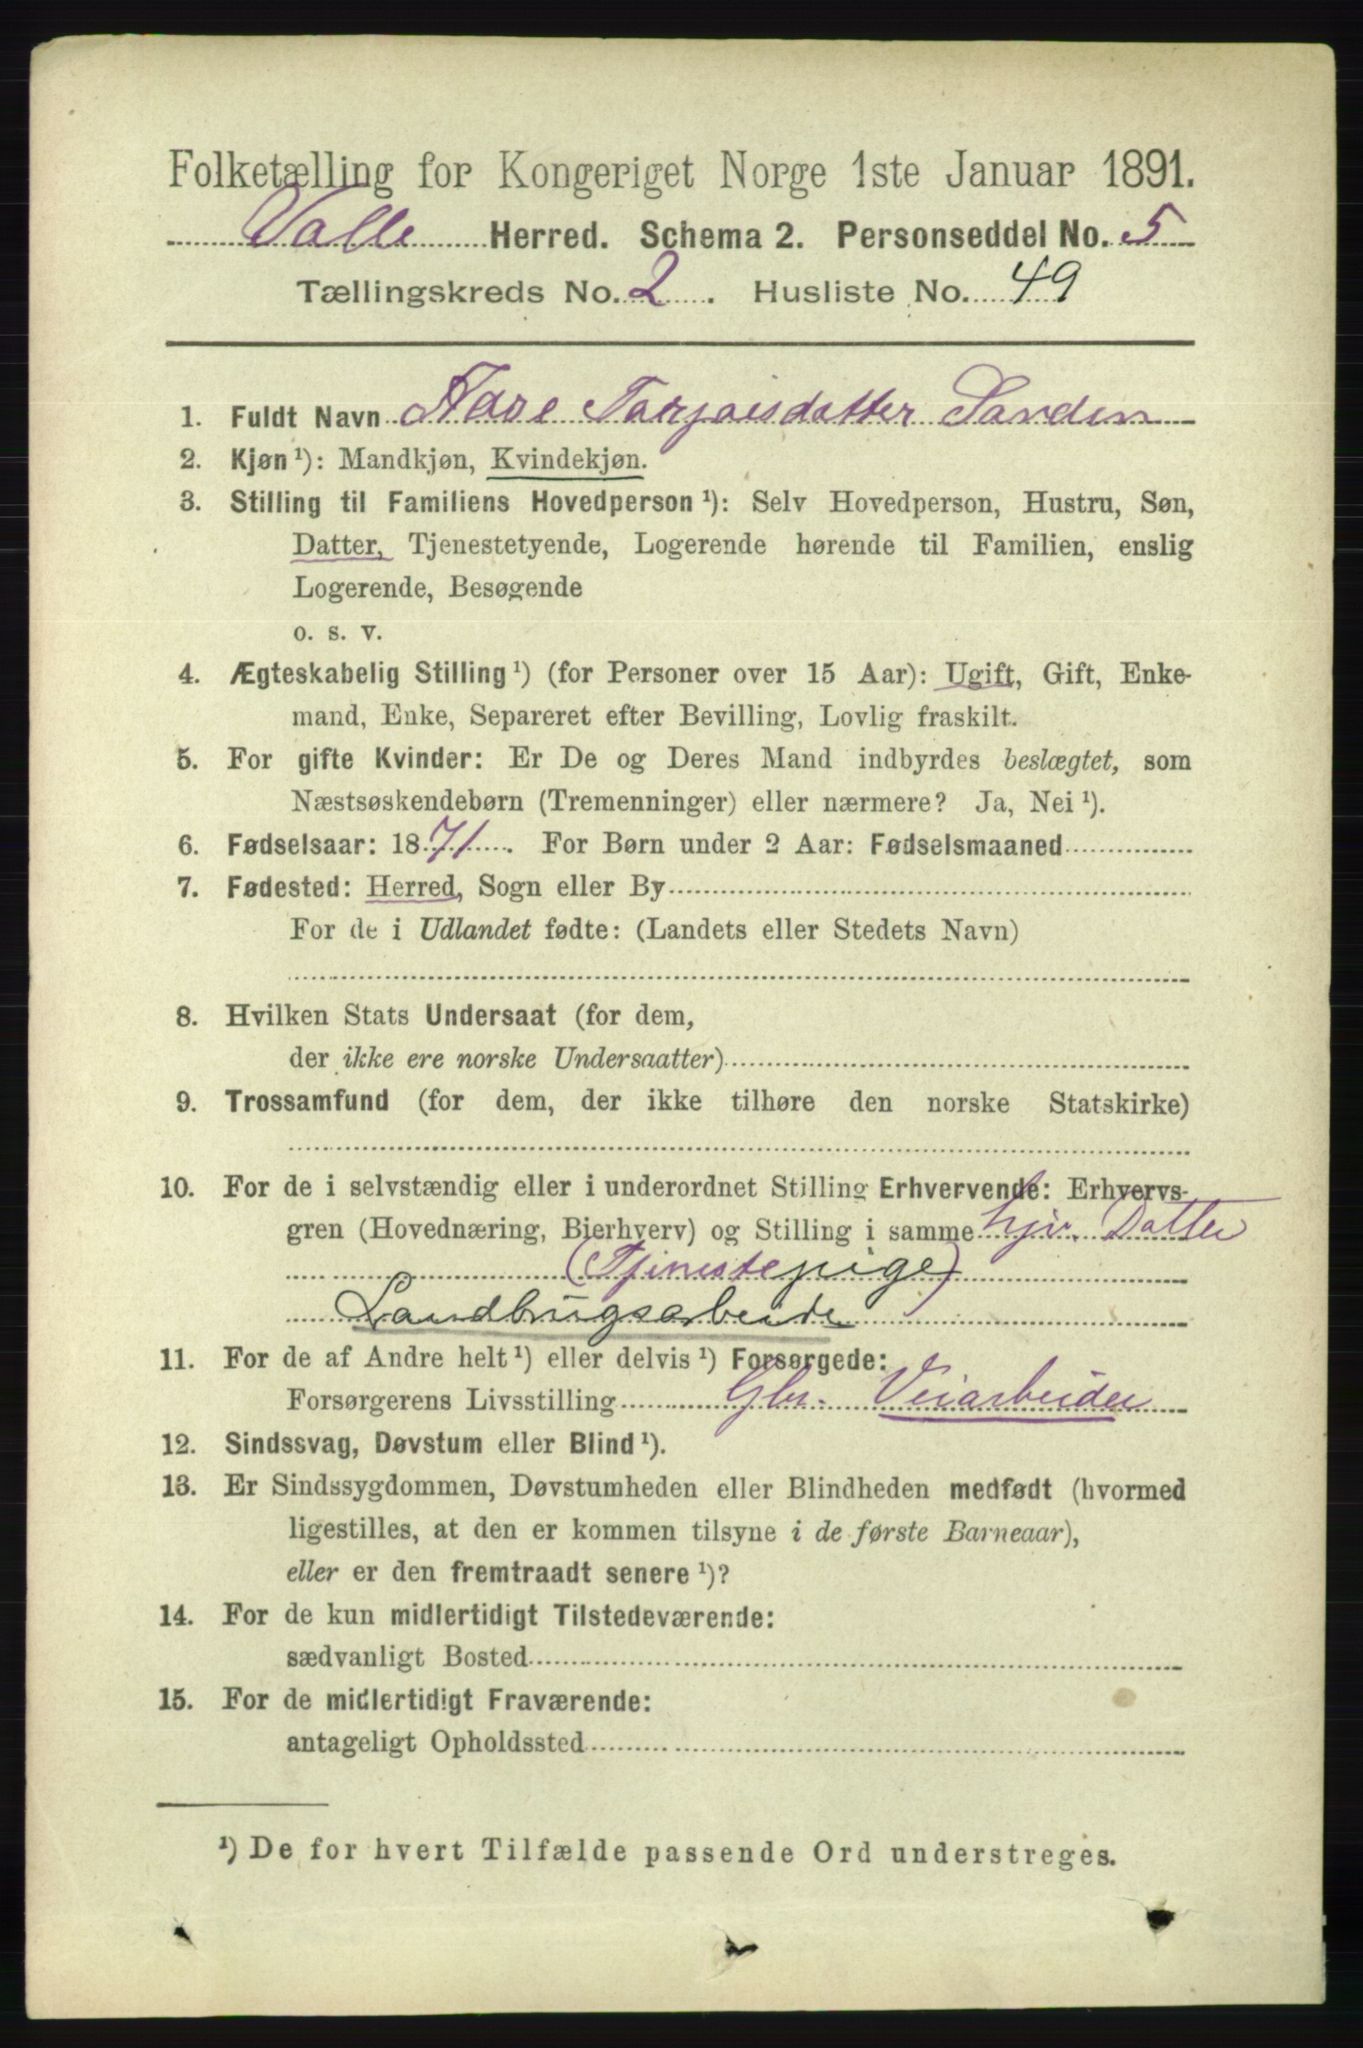 Folketælling for Kongeriget Norge 1ste Januar 1891.
Valle Herred. Schema 2. Personseddel No. 5
Tællingskreds No. 2. Husliste No. 49
1. Fuldt Navn Targjeisdatter Sanden
2. Kjøn ¹): Mandkjøn, Kvindekjøn.
3. Stilling til Familiens Hovedperson ¹): Selv Hovedperson, Hustru, Søn,
Datter, Tjenestetyende, Logerende hørende til Familien, enslig
Logerende, Besøgende
o. s. v.
4. Ægteskabelig Stilling ¹) (for Personer over 15 Aar): Ugift, Gift, Enke-
mand, Enke, Separeret efter Bevilling, Lovlig fraskilt.
5. For gifte Kvinder: Er De og Deres Mand indbyrdes beslægtet, som
Næstsøskendebørn (Tremenninger) eller nærmere? Ja, Nei ¹).
6. Fødselsaar: 1871. For Børn under 2 Aar: Fødselsmaaned
7. Fødested: Herred, Sogn eller By
For de i Udlandet fødte: (Landets eller Stedets Navn)
8. Hvilken Stats Undersaat (for dem,
der ikke ere norske Undersaatter)
9. Trossamfund (for dem, der ikke tilhøre den norske Statskirke)
10. For de i selvstændig eller i underordnet Stilling Erhvervende: Erhvervs-
gren (Hovednæring, Bierhverv) og Stilling i samme hjv. Datter
(Tjenestepige)
Landbrugsarbeide
11. For de af Andre helt ¹) eller delvis ¹) Forsørgede:
Forsørgerens Livsstilling Gbr. Veiarbeider
12. Sindssvag, Døvstum eller Blind ¹).
13. Er Sindssygdommen, Døvstumheden eller Blindheden medfødt (hvormed
ligestilles, at den er kommen tilsyne i de første Barneaar),
eller er den fremtraadt senere ¹)?
14. For de kun midlertidigt Tilstedeværende:
sædvanligt Bosted
15. For de midlertidigt Fraværende:
antageligt Opholdssted
¹) De for hvert Tilfælde passende Ord understreges.